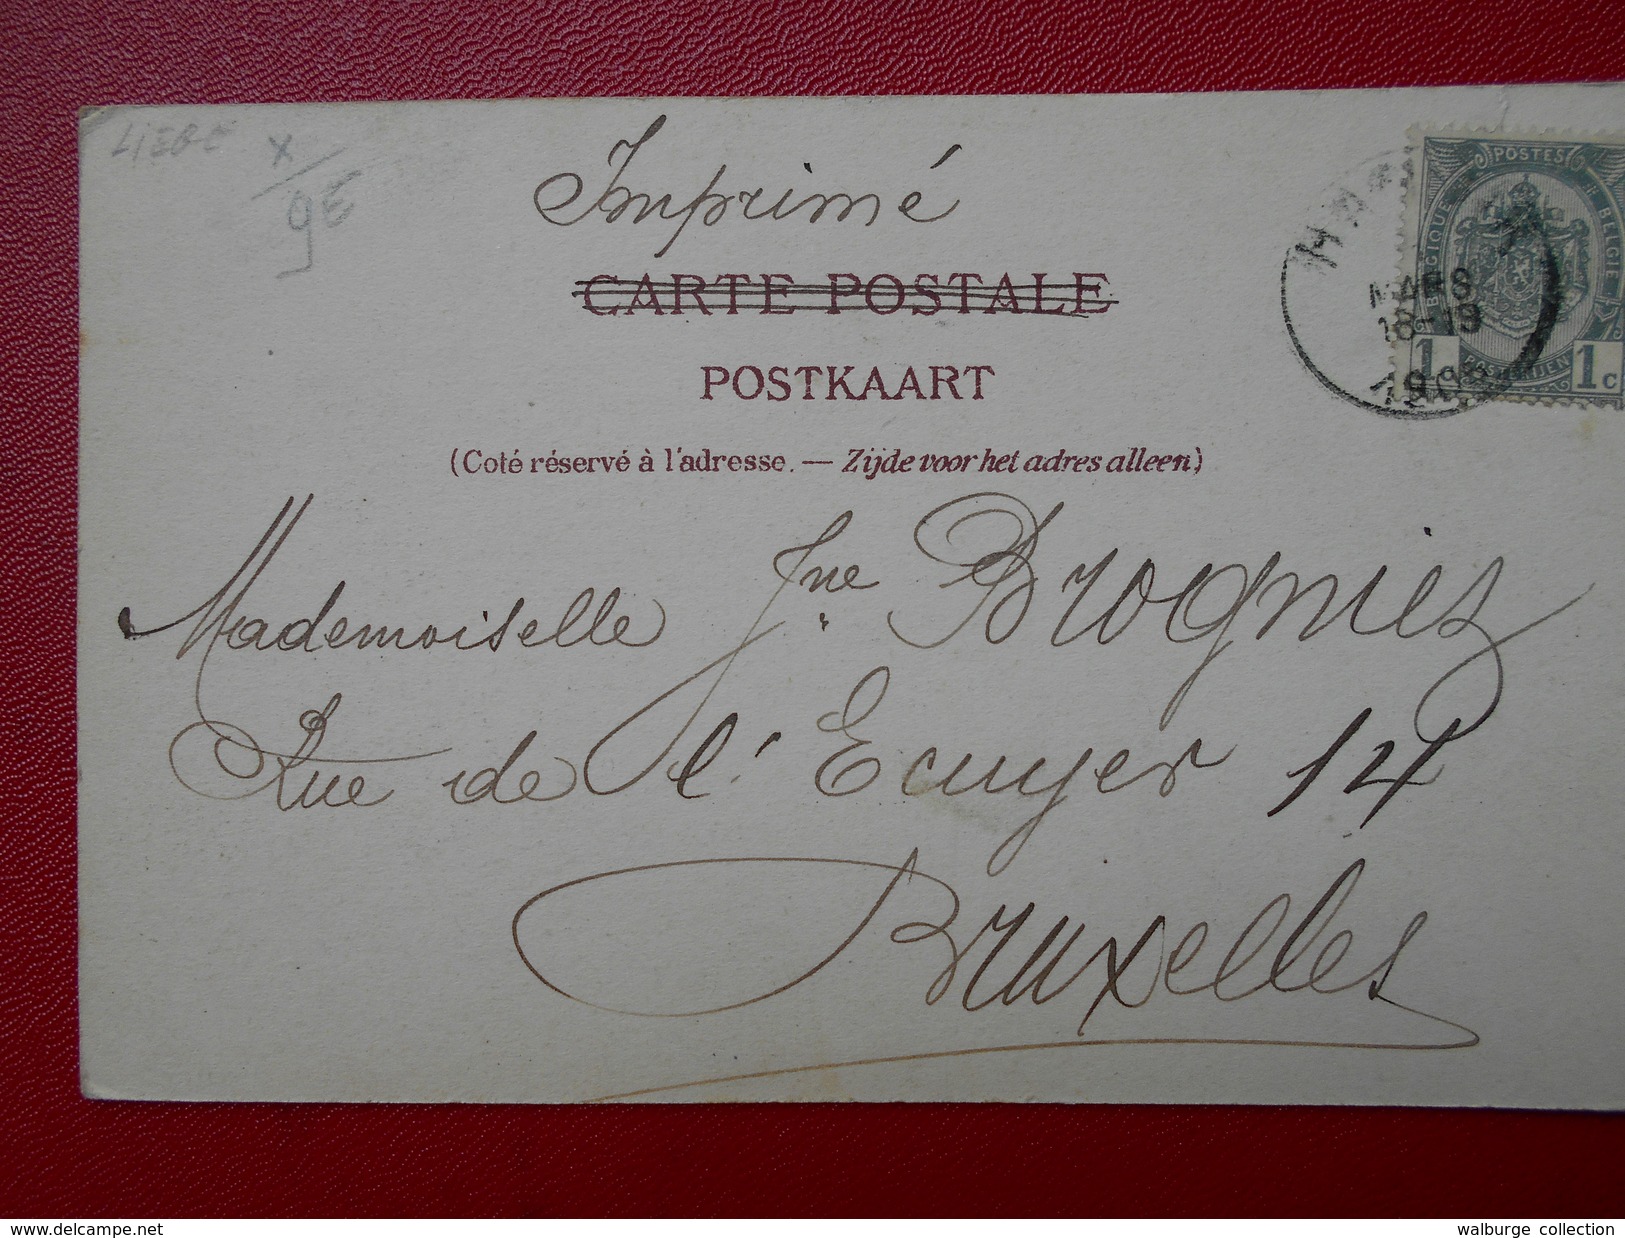 LIEGE X
9E
Imprimé
CARTE POSTALE
POSTKAART
(Coté réservé à l'adresse. — Zijde voor het adres alleen)
POSTES
BELGIQUE BELGIE
1 1c
MARS
18-19
Mademoiselle Jne Brogniez
Rue de l'Ecuyer 14
Bruxelles
www.delcampe.net
walburge collection